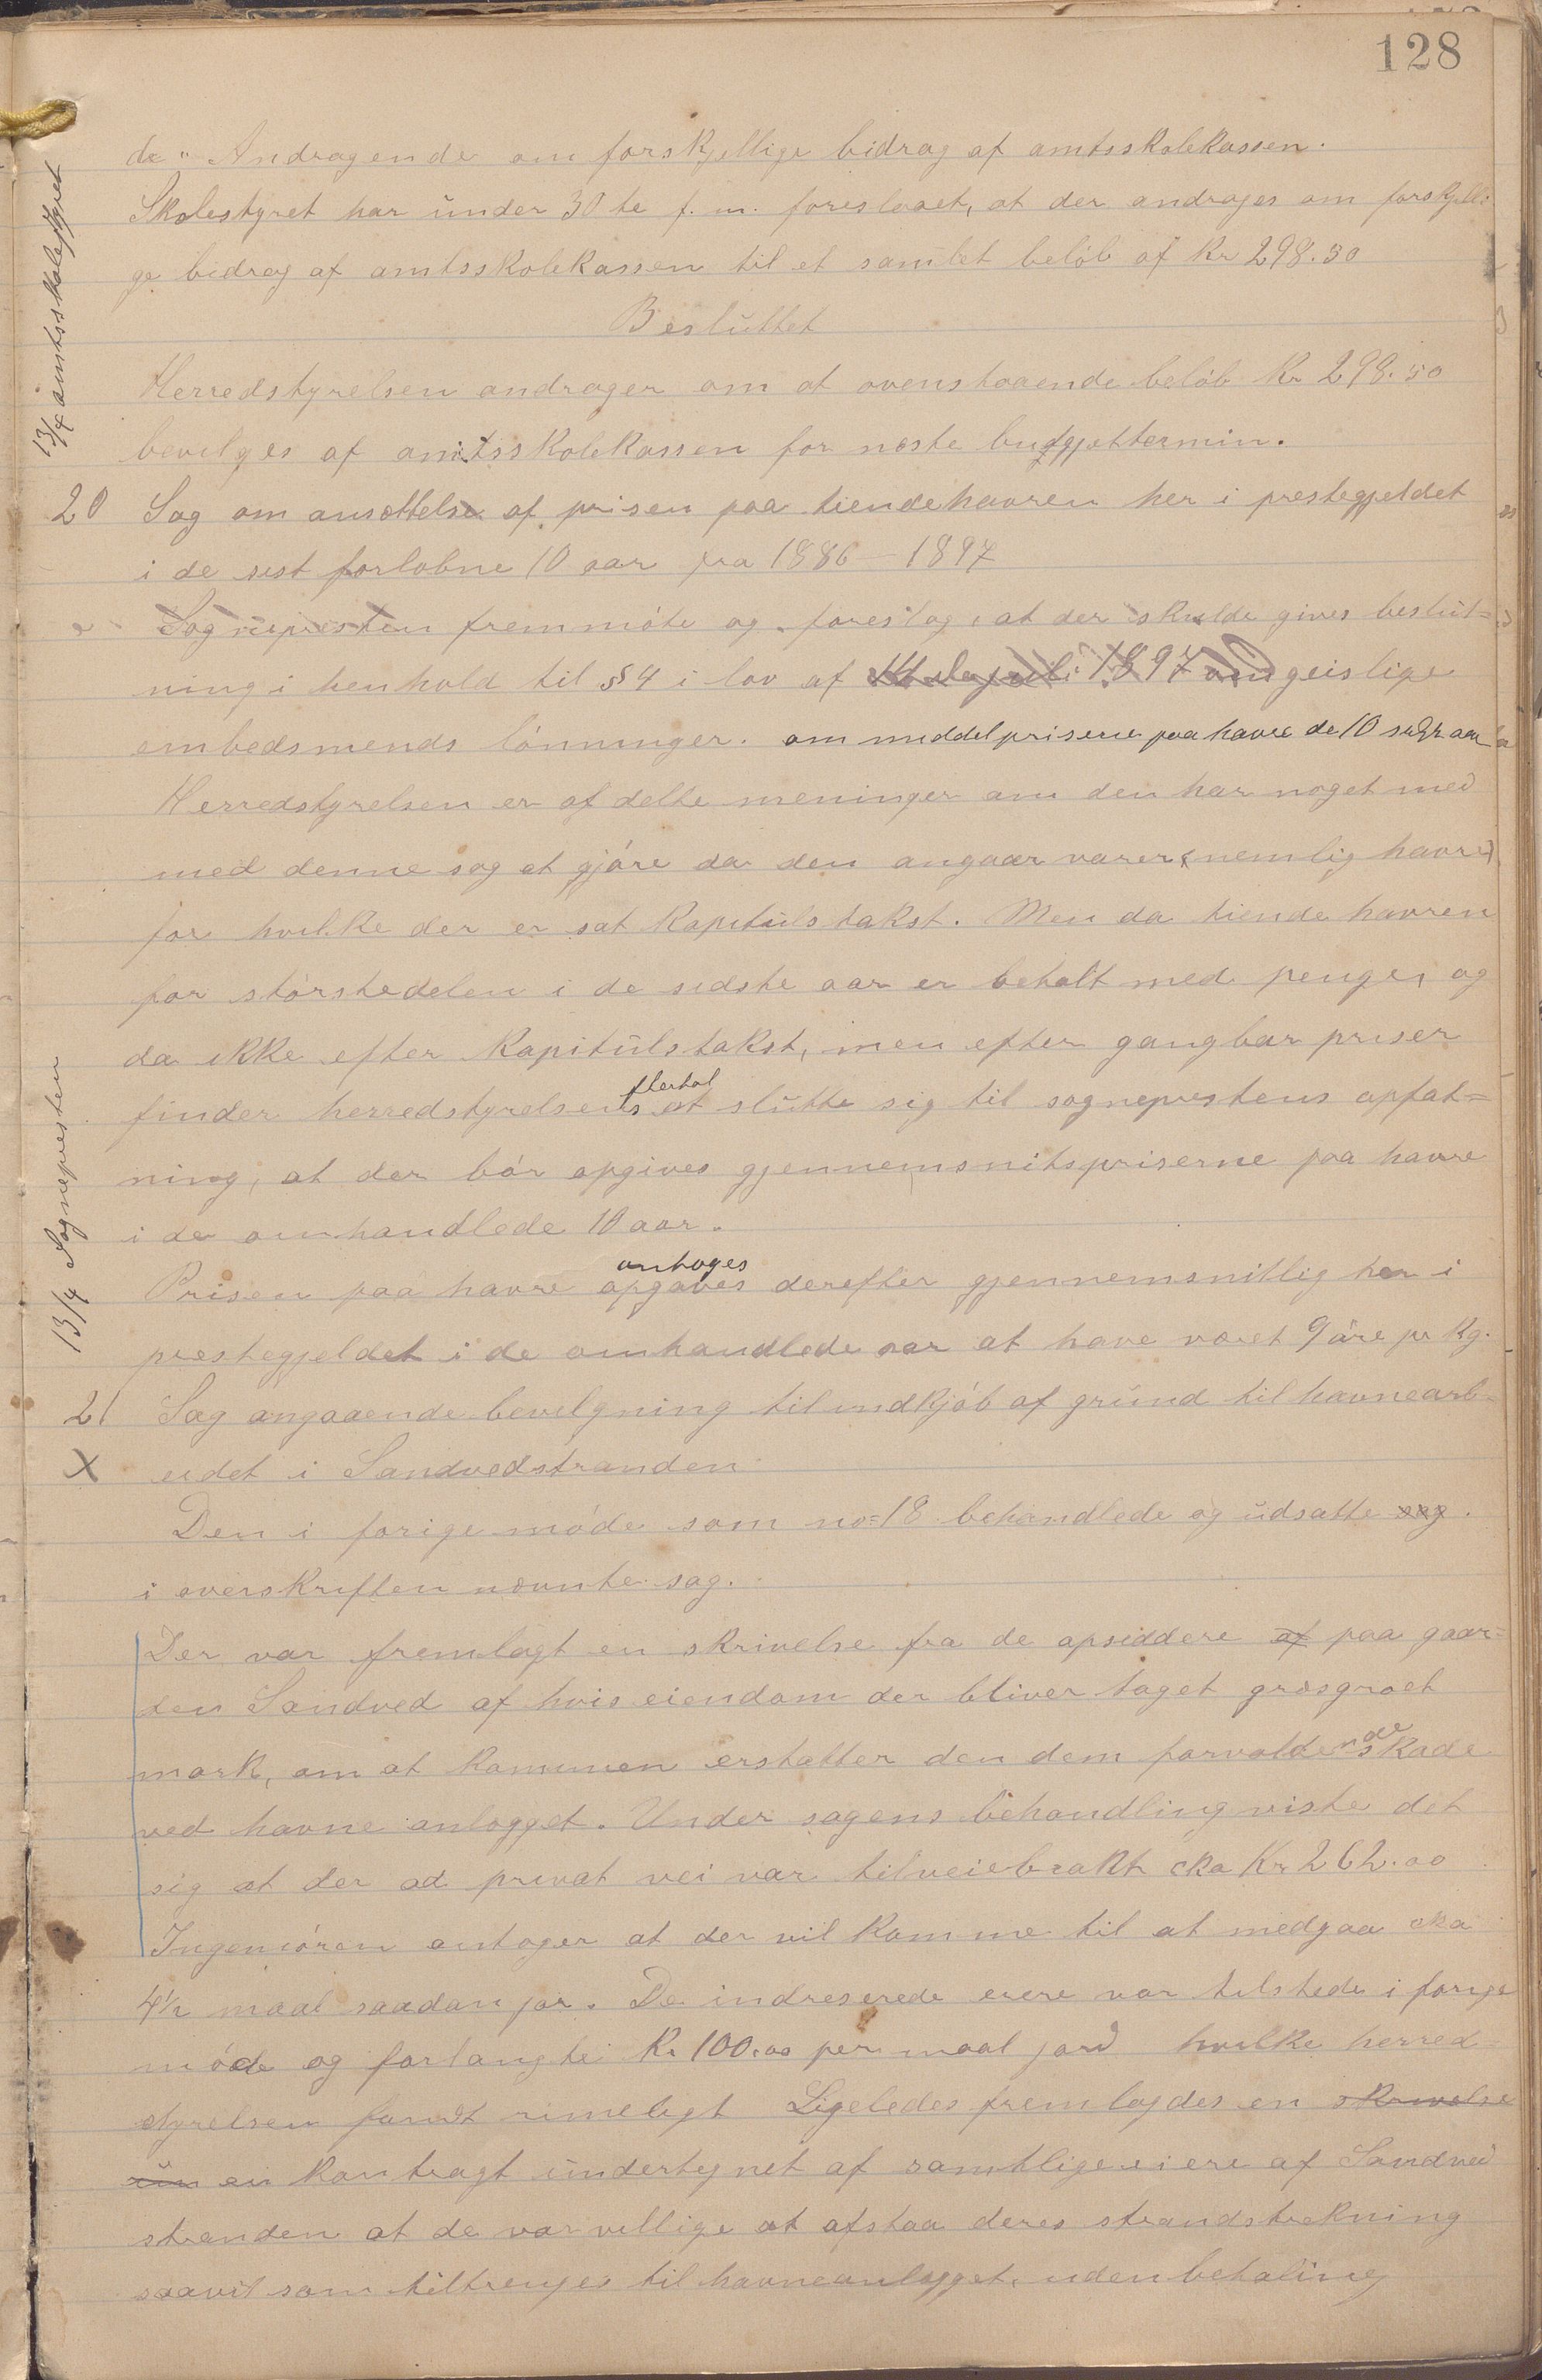 128
de" Andragende om forskjellige bidrag af amtsskolekassen.
Skolestyret har under 30te f. m. foreslaaet, at der andrages om forskjelli=
ge bidrag af amtsskolekassen til et samlet beløb af Kr 298.30
Besluttet
Herredstyrelsen andrager om at ovenstaaende beløb Kr 298.30
bevilges af amtsskolekassen for næste budgjettermin.
13/4 amtsskolestyret
20 Sag om ansættelse af prisen paa tiendehavren her i prestegjeldet
i de sist forløbne 10 aar fra 1886-1897
Sognepresten fremmøte og foreslog, at der skulde gives beslut=
ning i henhold til §4 i lov af 1897 om geislige
embedsmends lønninger. om middelprisene paa havre de 10 sidste aar
Herredstyrelsen er af delte meninger om den har noget med
med denne sag at gjøre da den angaar varer (nemlig havre)
for hvilke der er sat Kapitulstakst. Men da tiende havren
for størstedelen i de sidste aar er betalt med penge, og
da ikke efter Kapitulstakst, men efter gangbar priser
finder herredstyrelsens flertal at slutte sig til sogneprestens opfat=
ning, at der bør opgives gjennemsnitspriserne paa havre
i de omhandlede 10 aar.
Prisen paa havre opgaves antages derefter gjennemsnitlig her i
prestegjeldet i de omhandlede aar at have været 9 øre pr Kg.
13/4 Sognepresten
21 Sag angaaende bevilgning til indkjøb af grund til havnearb=
X eidet i Sandvedstranden
Den i forige møde som no=18 behandlede og udsatte sag.
i overskriften nævnte sag.
Der var fremlagt en skrivelse fra de opsiddere af paa gaar=
den Sandved af hvis eiendom der bliver taget græsgroet
mark, om at Kommunen erstatter den dem forvoldende skade
ved havne anlægget. Under sagens behandling viste det
sig at der ad privat vei var tilveiebrakt cka Kr 262.00
Ingeniøren antager at der vil komme til at medgaa cka
4½ maal saadan jor. De indreserede eiere var tilstede i forige
møde og forlangte Kr 100.00 per maal jord hvilke herred=
styrelsen fandt rimeligt Ligeledes fremlagdes en skrivelse
en kontragt undertegnet af samtlige eiere af Sandved
stranden at de var villige at afstaa deres strandstrekning
saavit som tiltrenges til havneanlegget, uden betaling